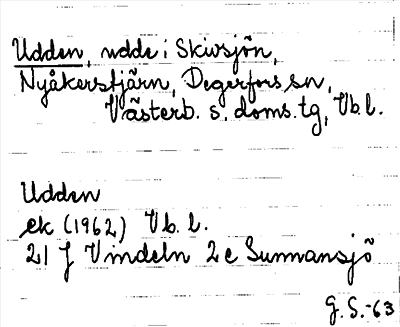 Udden, udde i Skivsjön,
Nyåkerstjärn, Degerfors sn,
Västerb. s. doms. tg, Vb. l.
Udden
ek (1962) Vb. l.
21 J Vindeln 2 e Sunnansjö
G. S. -63